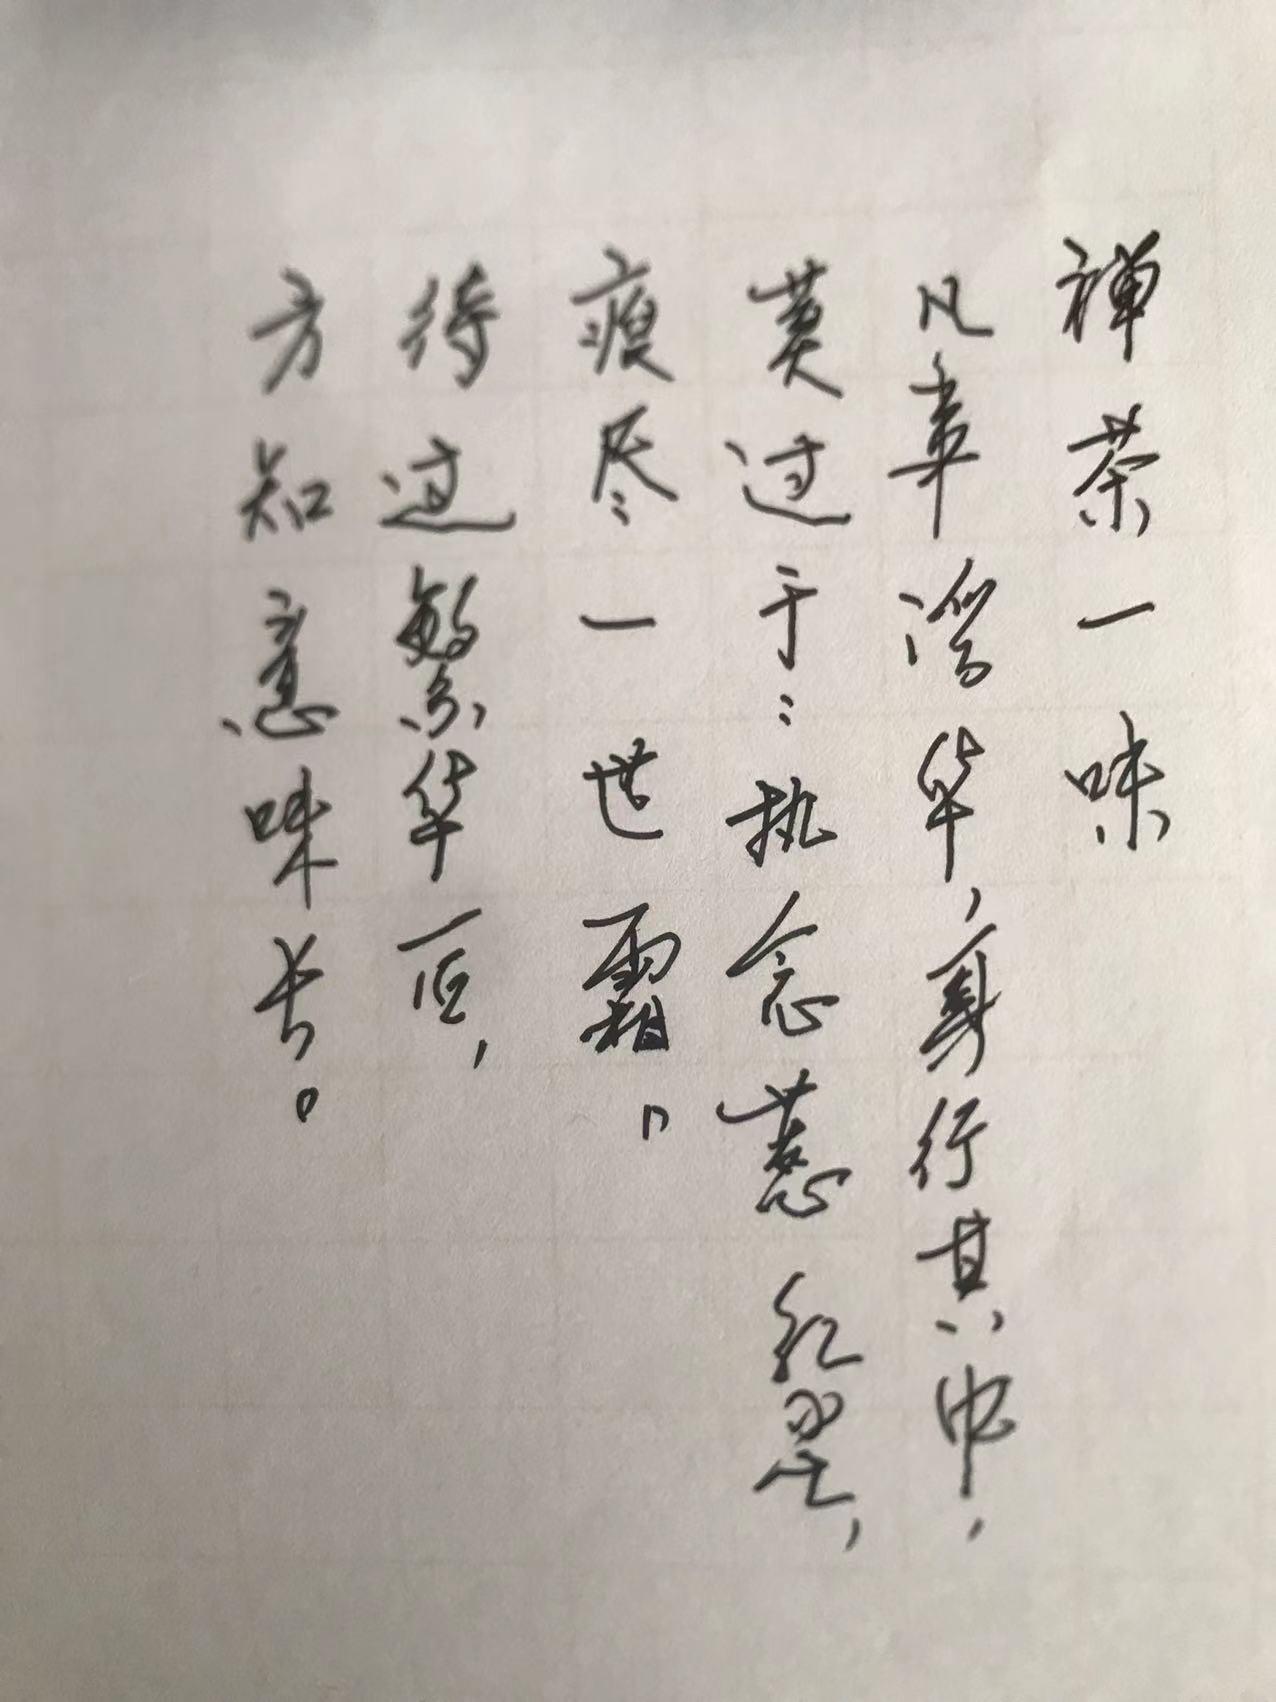 禅茶一味
凡事浮华，身行其中，
莫过于：执念惹红尘，
痕尽一世霜。
待过繁华一〇，
方知意味长。